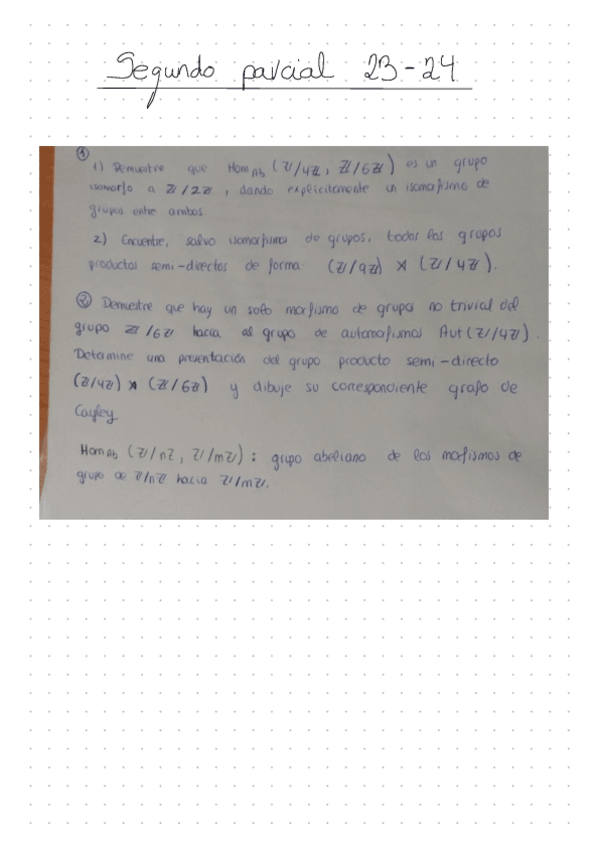 Segundo parcial 23-24
①
1) Demuestre que Hom_Ab (Z/4Z, Z/6Z) es un grupo
isomorfo a Z/2Z, dando explícitamente un isomorfismo de
grupos entre ambos.
2) Encuentre, salvo isomorfismo de grupos, todos los grupos
productos semi-directos de forma (Z/9Z) ⋊ (Z/4Z).
② Demuestre que hay un solo morfismo de grupos no trivial del
grupo Z/6Z hacia al grupo de automorfismos Aut(Z/4Z).
Determine una presentación del grupo producto semi-directo
(Z/4Z) ⋊ (Z/6Z) y dibuje su correspondiente grafo de
Cayley
Hom_Ab (Z/nZ, Z/mZ): grupo abeliano de los morfismos de
grupo de Z/nZ hacia Z/mZ.